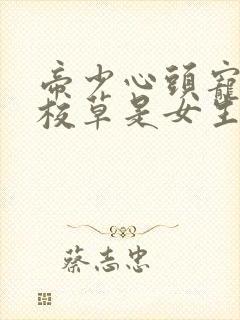 帝少心頭寵
校草是女生
蔡志忠